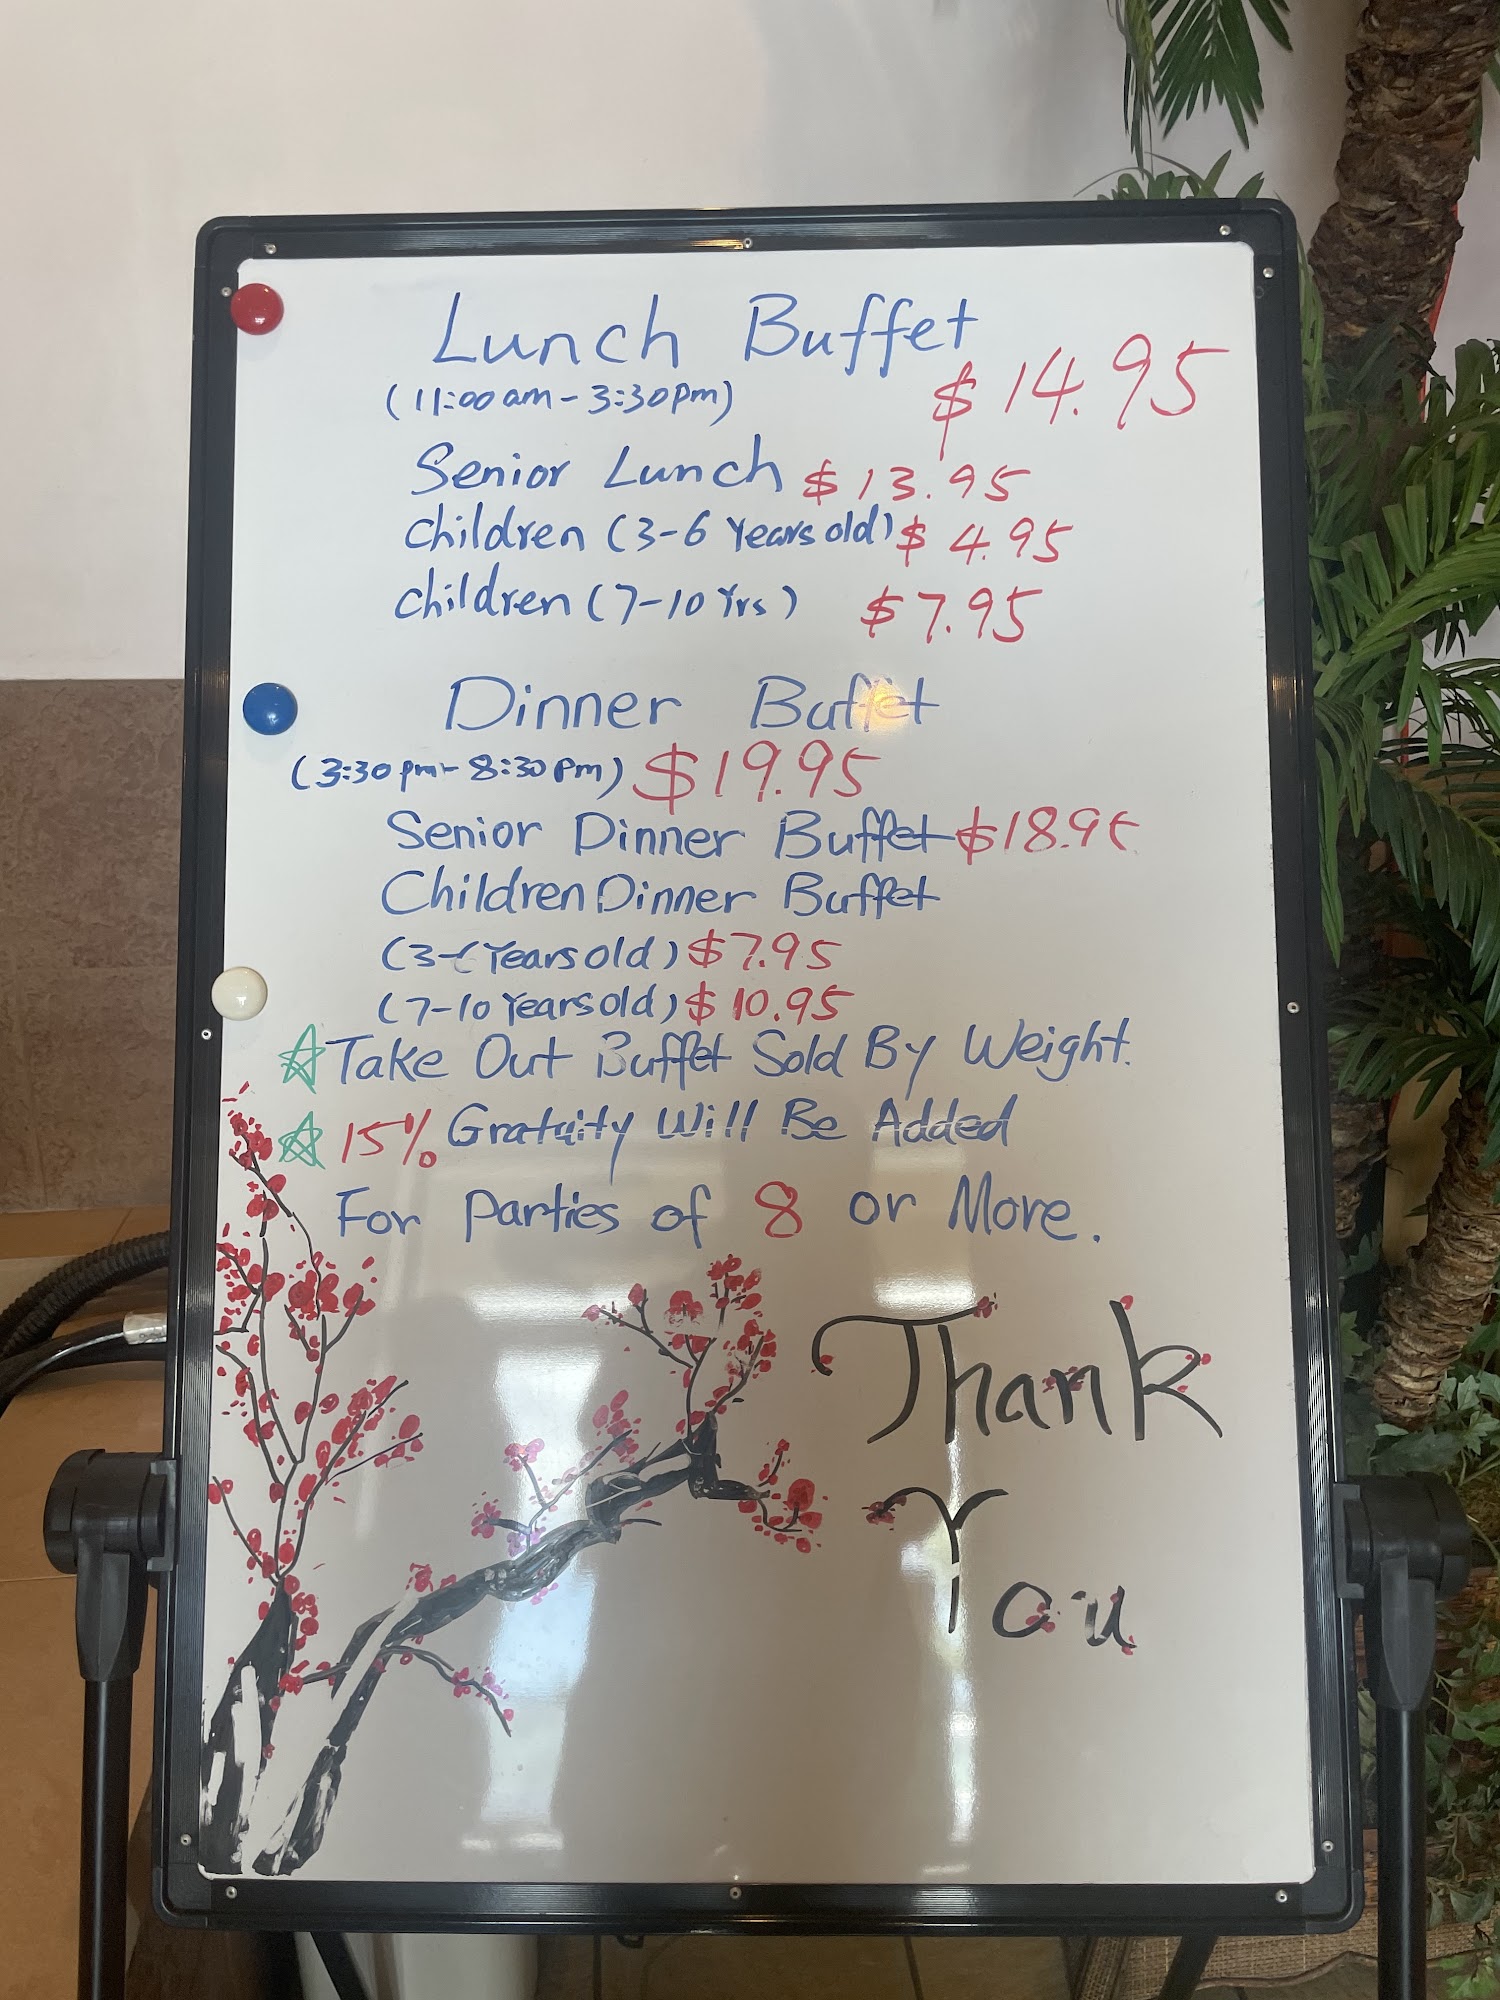 Lunch Buffet
(11:00am-3:30pm) $14.95
Senior Lunch $13.95
children (3-6 Years old) $4.95
children (7-10 Yrs) $7.95
Dinner Buffet
(3:30pm-8:30pm) $19.95
Senior Dinner Buffet $18.95
Children Dinner Buffet
(3- Years old) $7.95
(7-10 Years old) $10.95
☆ Take Out Buffet Sold By Weight.
☆ 15% Gratuity Will Be Added
For Parties of 8 or More.
Thank
You